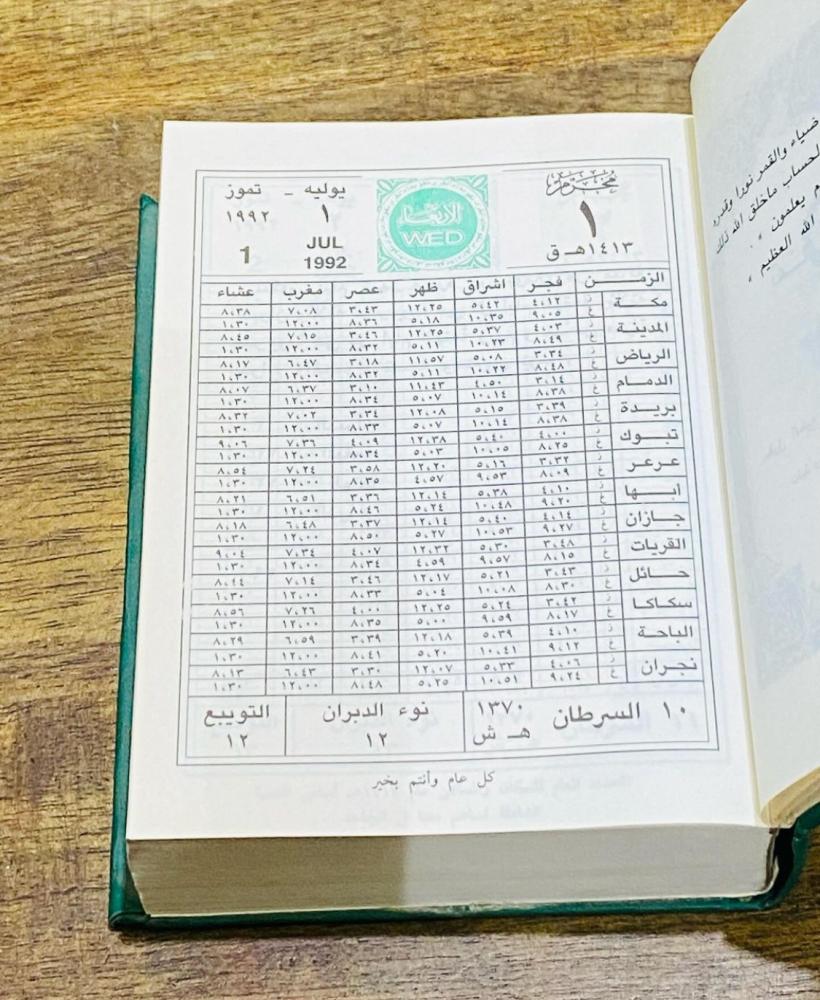 محرم
١
١٤١٣هـ ـ ق
الاربعاء
WED
يوليه ـ تموز
١ ١٩٩٢
JUL 1
1992
الزمــن فجر اشراق ظهر عصر مغرب عشاء
مكـة ز ٤،١٢ ٥،٤٢ ١٢،٢٥ ٣،٤٣ ٧،٠٨ ٨،٣٨
غ ٩،٠٥ ١٠،٣٥ ٥،١٨ ٨،٣٦ ١٢،٠٠ ١،٣٠
المدينة ز ٤،٠٣ ٥،٣٧ ١٢،٢٥ ٣،٤٦ ٧،١٥ ٨،٤٥
غ ٨،٤٩ ١٠،٢٣ ٥،١١ ٨،٣٢ ١٢،٠٠ ١،٣٠
الرياض ز ٣،٣٤ ٥،٠٨ ١١،٥٧ ٣،١٨ ٦،٤٧ ٨،١٧
غ ٨،٤٨ ١٠،٢٢ ٥،١١ ٨،٣٢ ١٢،٠٠ ١،٣٠
الدمام ز ٣،١٤ ٤،٥٠ ١١،٤٣ ٣،١٠ ٦،٣٧ ٨،٠٧
غ ٨،٣٨ ١٠،١٤ ٥،٠٧ ٨،٣٤ ١٢،٠٠ ١،٣٠
بريـدة ز ٣،٣٩ ٥،١٥ ١٢،٠٨ ٣،٣٤ ٧،٠٢ ٨،٣٢
غ ٨،٣٨ ١٠،١٤ ٥،٠٧ ٨،٣٣ ١٢،٠٠ ١،٣٠
تبـوك ز ٤،٠٠ ٥،٤٠ ١٢،٣٨ ٤،٠٩ ٧،٣٦ ٩،٠٦
غ ٨،٢٥ ١٠،٠٥ ٥،٠٣ ٨،٣٤ ١٢،٠٠ ١،٣٠
عـرعر ز ٣،٣٢ ٥،١٦ ١٢،٢٠ ٣،٥٨ ٧،٢٤ ٨،٥٤
غ ٨،٠٩ ٩،٥٣ ٤،٥٧ ٨،٣٥ ١٢،٠٠ ١،٣٠
أبـها ز ٤،١٠ ٥،٣٨ ١٢،١٤ ٣،٣٦ ٦،٥١ ٨،٢١
غ ٩،٢٠ ١٠،٤٨ ٥،٢٤ ٨،٤٦ ١٢،٠٠ ١،٣٠
جازان ز ٤،١٤ ٥،٤٠ ١٢،١٤ ٣،٣٧ ٦،٤٨ ٨،١٨
غ ٩،٢٧ ١٠،٥٣ ٥،٢٧ ٨،٥٠ ١٢،٠٠ ١،٣٠
القريات ز ٣،٤٨ ٥،٣٠ ١٢،٣٢ ٤،٠٧ ٧،٣٤ ٩،٠٤
غ ٨،١٥ ٩،٥٧ ٤،٥٩ ٨،٣٤ ١٢،٠٠ ١،٣٠
حـائل ز ٣،٤٣ ٥،٢١ ١٢،١٧ ٣،٤٦ ٧،١٤ ٨،٤٤
غ ٨،٣٠ ١٠،٠٨ ٥،٠٤ ٨،٣٣ ١٢،٠٠ ١،٣٠
سكـاكا ز ٣،٤٢ ٥،٢٤ ١٢،٢٥ ٤،٠٠ ٧،٢٦ ٨،٥٦
غ ٨،١٧ ٩،٥٩ ٥،٠٠ ٨،٣٥ ١٢،٠٠ ١،٣٠
الباحـة ز ٤،١٠ ٥،٣٩ ١٢،١٨ ٣،٣٩ ٦،٥٩ ٨،٢٩
غ ٩،١٢ ١٠،٤١ ٥،٢٠ ٨،٤١ ١٢،٠٠ ١،٣٠
نجـران ز ٤،٠٦ ٥،٣٣ ١٢،٠٧ ٣،٣٠ ٦،٤٣ ٨،١٣
غ ٩،٢٤ ١٠،٥١ ٥،٢٥ ٨،٤٨ ١٢،٠٠ ١،٣٠
١٠ السرطان ١٣٧٠ هـ ش
نوء الدبران ١٢
التويبع ١٢
كل عام وأنتم بخير
ضياء والقمر نورا وقدره
لحساب ماخلق الله ذلك
يعلمون » .
الله العظيم »